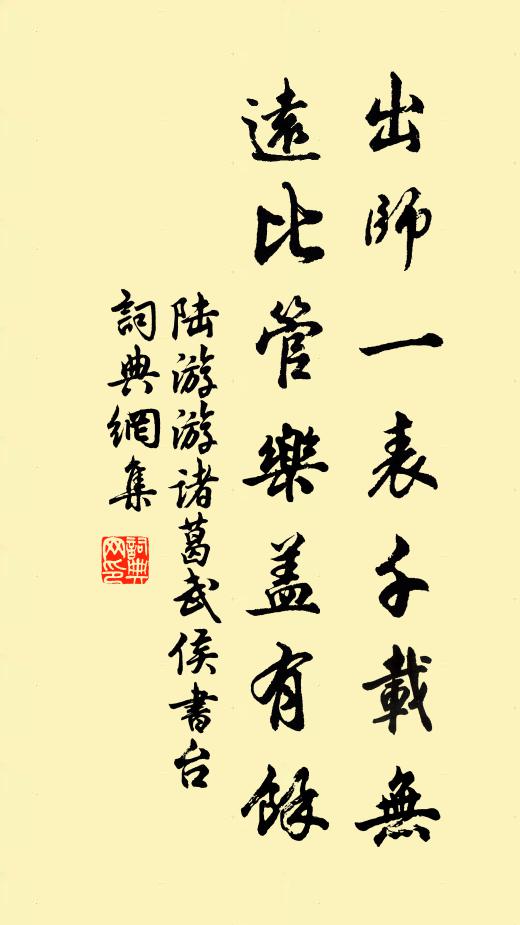 出師一表千載無
遠比管樂盖有餘
陆游游诸葛武侯書台
詞典網集
詞典网印